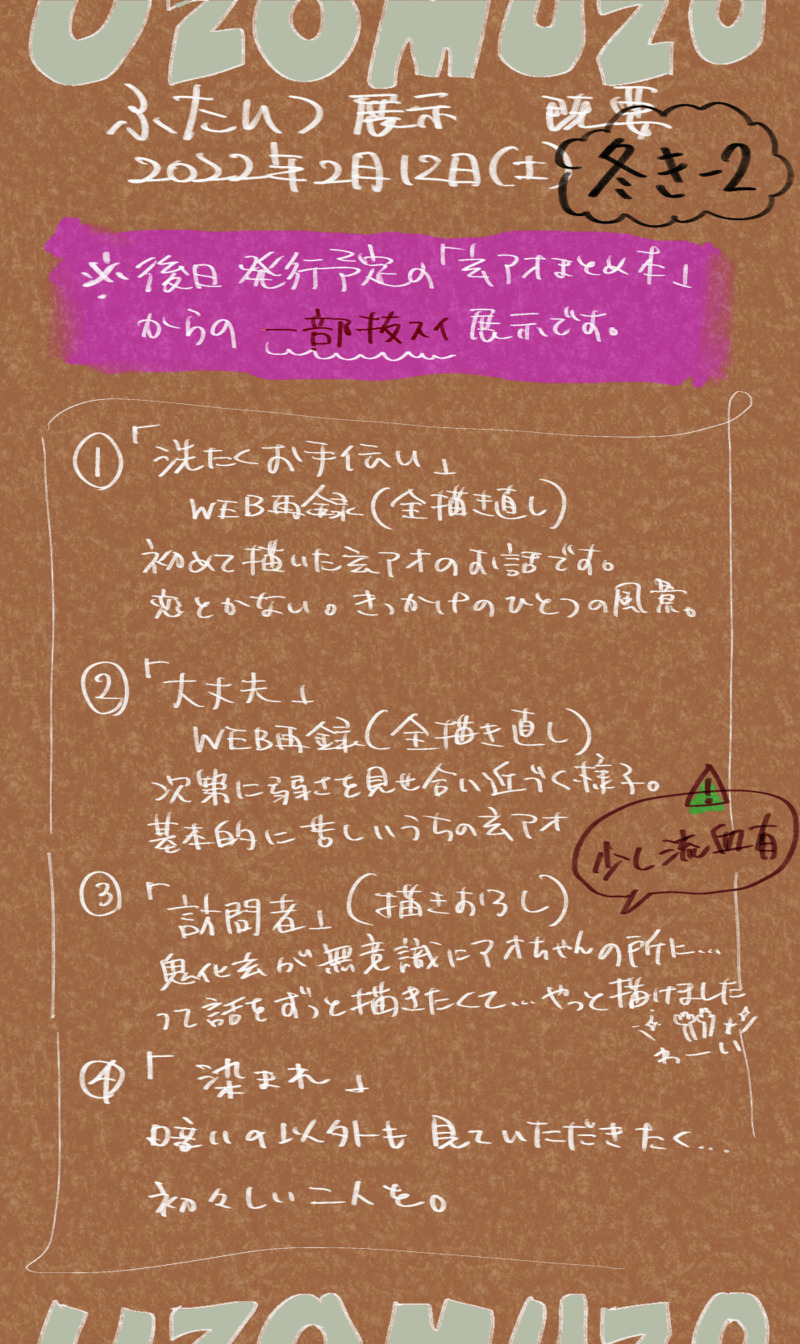 UZOMUZO
ふたいつ 展示 概要
2022年2月12日(土)
冬き-2
※後日 発行予定の「玄アオまとめ本」
からの 一部抜スイ 展示です。
①「洗たくお手伝い」
WEB再録(全描き直し)
初めて描いた玄アオのお話です。
恋とかない。きっかけのひとつの風景。
②「大丈夫」
WEB再録(全描き直し)
次第に弱さを見せ合い近づく様子。
基本的に苦しいうちの玄アオ
!
少し流血有
③「訪問者」(描きおろし)
鬼化玄が無意識にアオちゃんの所に…
って話をずっと描きたくて…やっと描けました
わーい
④「染まれ」
暗い以外も 見ていただきたく…
初々しい二人を。
UZOMUZO